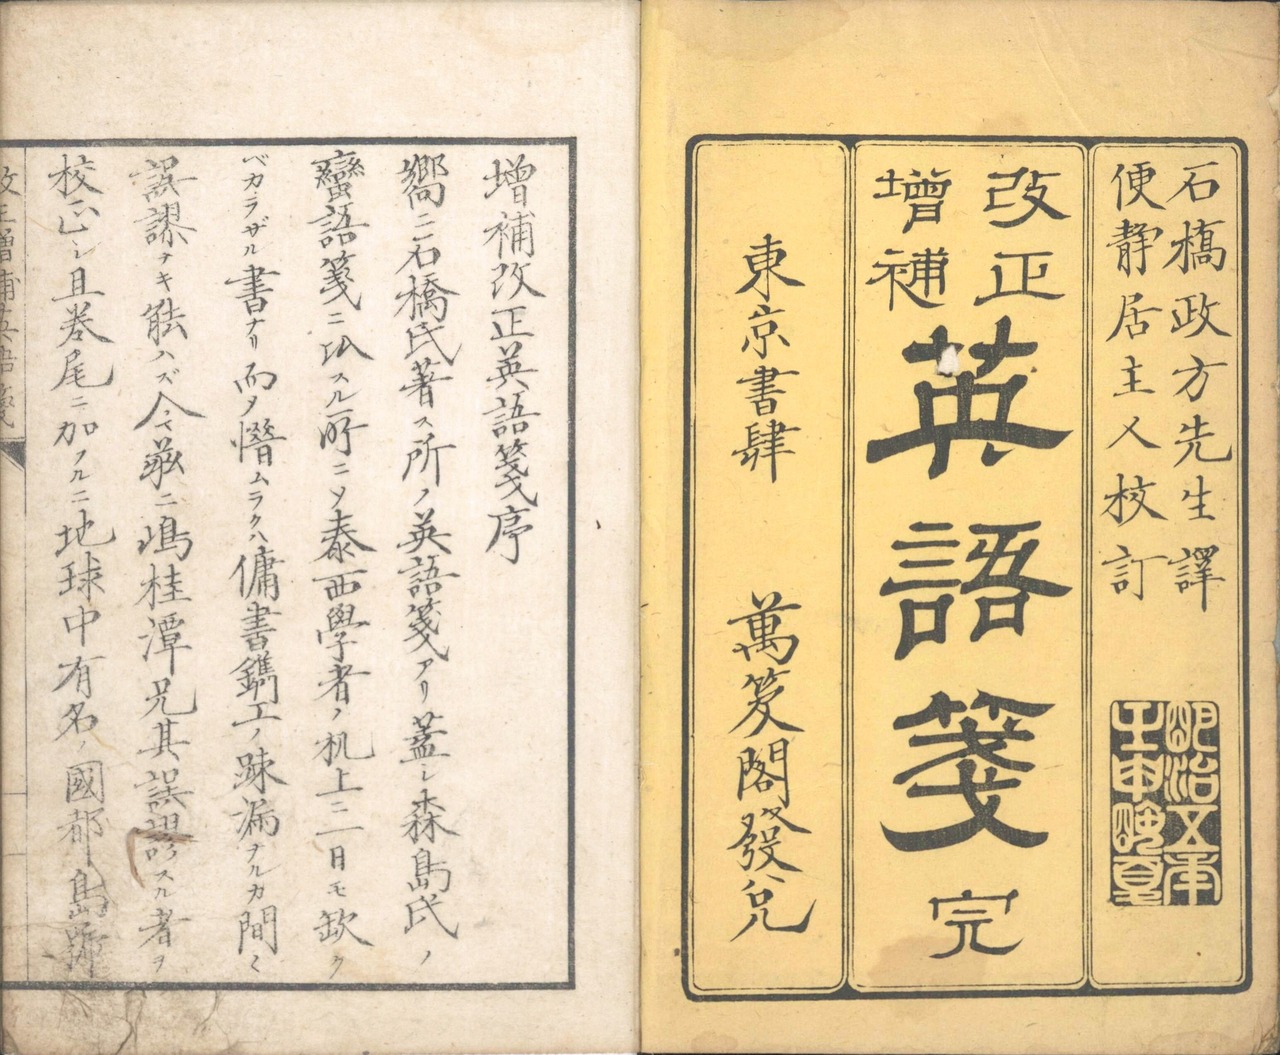 石橋政方先生譯
便静居主人校訂
明治五年
壬申晩夏
改正
增補
英語箋 完
東京書肆 萬笈閣發兌
增補改正英語箋序
嚮ニ石橋氏著ス所ノ英語箋アリ蓋シ森島氏ノ
蠻語箋ニ似スル所ニメ泰西學者ノ机上ニ一日モ欽ク
ベカラザル書ナリ而ヲ惜ムラクハ傭書鐫工ノ疎漏ナルカ間〻
誤謬ナキ能ハズ今茲ニ嶋桂潭兄其誤謬スル者ヲ
校正シ且巻尾ニ加フルニ地球中有名ノ國都島
改正增補英語箋